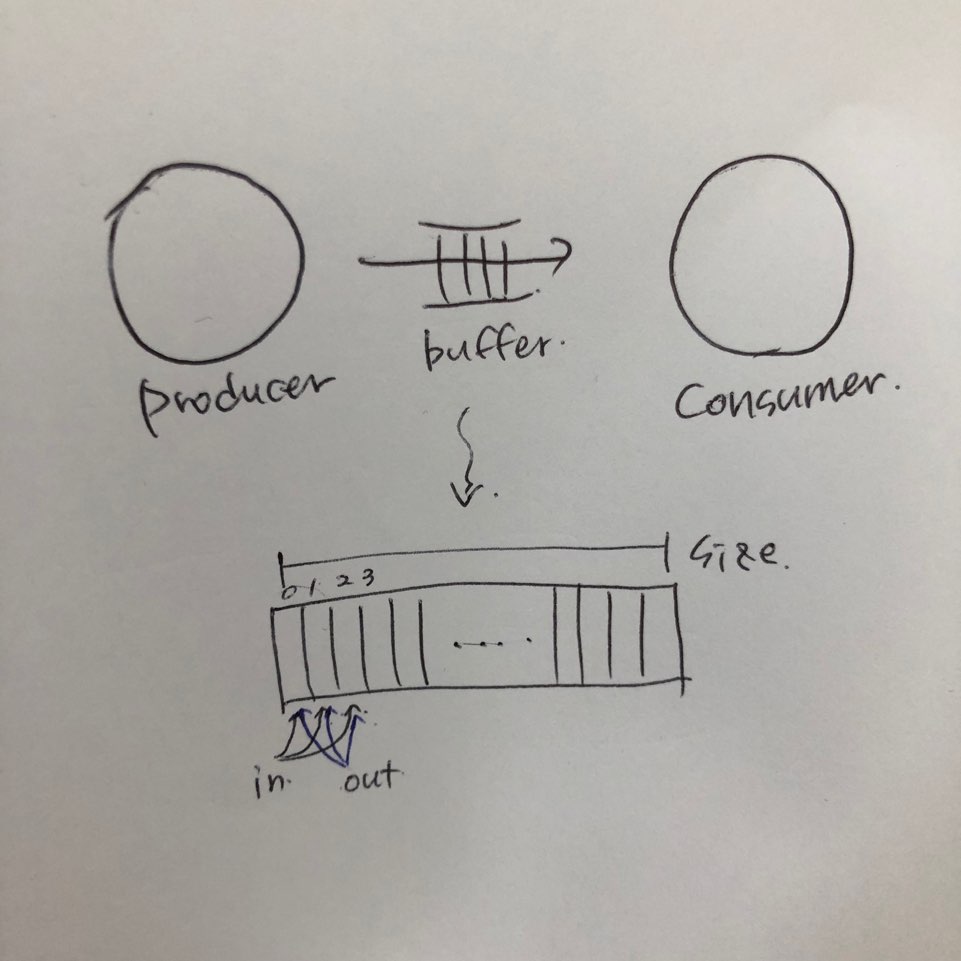 producer
buffer.
Consumer.
Size.
0 1 2 3
in.
out.